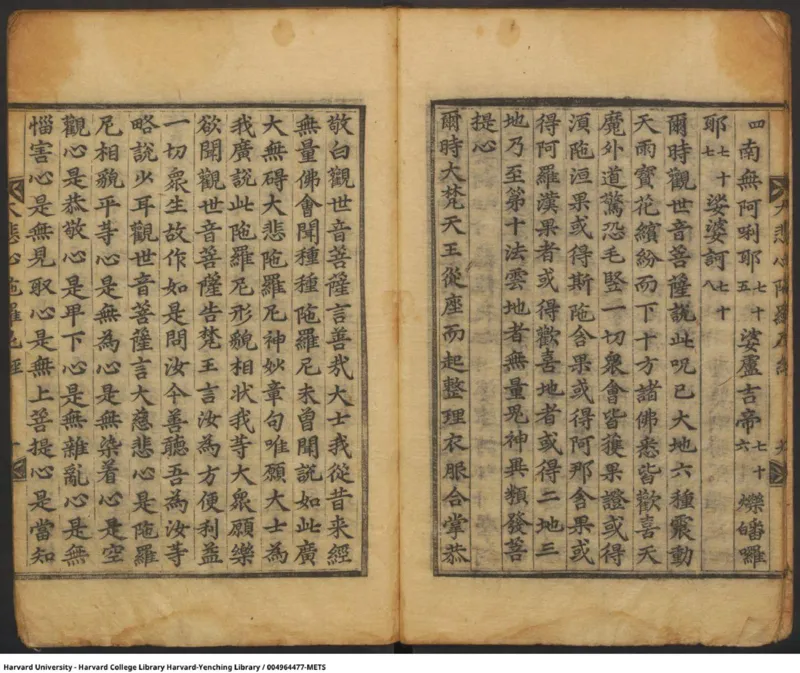 四南無阿唎耶七十五娑盧吉帝七十六爍皤囉
耶七十七娑婆訶七十八
爾時觀世音菩薩說此呪已大地六種震動
天雨寶花繽紛而下十方諸佛悉皆歡喜天
魔外道驚恐毛竪一切衆會皆獲果證或得
湏陁洹果或得斯陁含果或得阿那含果或
得阿羅漢果者或得歡喜地者或得二地三
地乃至第十法雲地者無量鬼神異類發菩
提心
爾時大梵天王從座而起整理衣服合掌恭
敬白觀世音菩薩言善㢤大士我從昔来經
無量佛會聞種種陁羅尼未曾聞說如此廣
大無碍大悲陁羅尼神妙章句唯願大士為
我廣說此陁羅尼形貌相状我等大衆願樂
欲聞觀世音菩薩告梵王言汝為方便利益
一切衆生故作如是問汝今善聽吾為汝等
略說少耳觀世音菩薩言大慈悲心是陁羅
尼相貌平等心是無為心是無染着心是空
觀心是恭敬心是卑下心是無雜亂心是無
惱害心是無見取心是無上菩提心是當知
大悲心陁羅尼経
Harvard University - Harvard College Library Harvard-Yenching Library / 004964477-METS